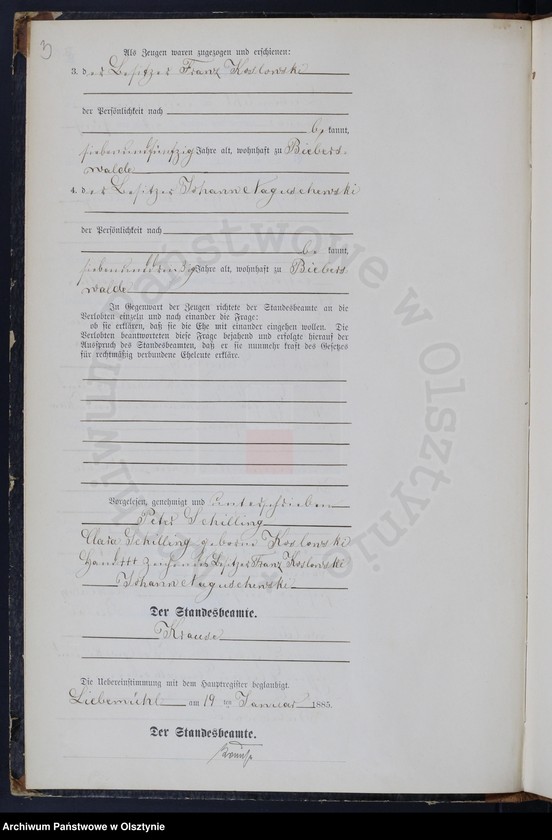 3
Als Zeugen waren zugezogen und erschienen:
3. der Besitzer Franz Koslowski
der Persönlichkeit nach
be kannt,
siebenundfünfzig Jahre alt, wohnhaft zu Biebers-
walde
4. der Besitzer Johann Naguschewski
der Persönlichkeit nach
be kannt,
Jahre alt, wohnhaft zu Biebers
walde
In Gegenwart der Zeugen richtete der Standesbeamte an die
Verlobten einzeln und nach einander die Frage:
ob sie erklären, daß sie die Ehe mit einander eingehen wollen. Die
Verlobten beantworteten diese Frage bejahend und erfolgte hierauf der
Ausspruch des Standesbeamten, daß er sie nunmehr kraft des Gesetzes
für rechtmäßig verbundene Eheleute erkläre.
Vorgelesen, genehmigt und unterschrieben
Peter Schilling
Clara Schilling geborene Koslowski
Besitzer Franz Koslowski
Johann Naguschewski
Der Standesbeamte.
Krause
Die Uebereinstimmung mit dem Hauptregister beglaubigt.
Liebemühl am 19 ten Januar 1885.
Der Standesbeamte.
Archiwum Państwowe w Olsztynie
Archiwum Państwowe w Olsztynie